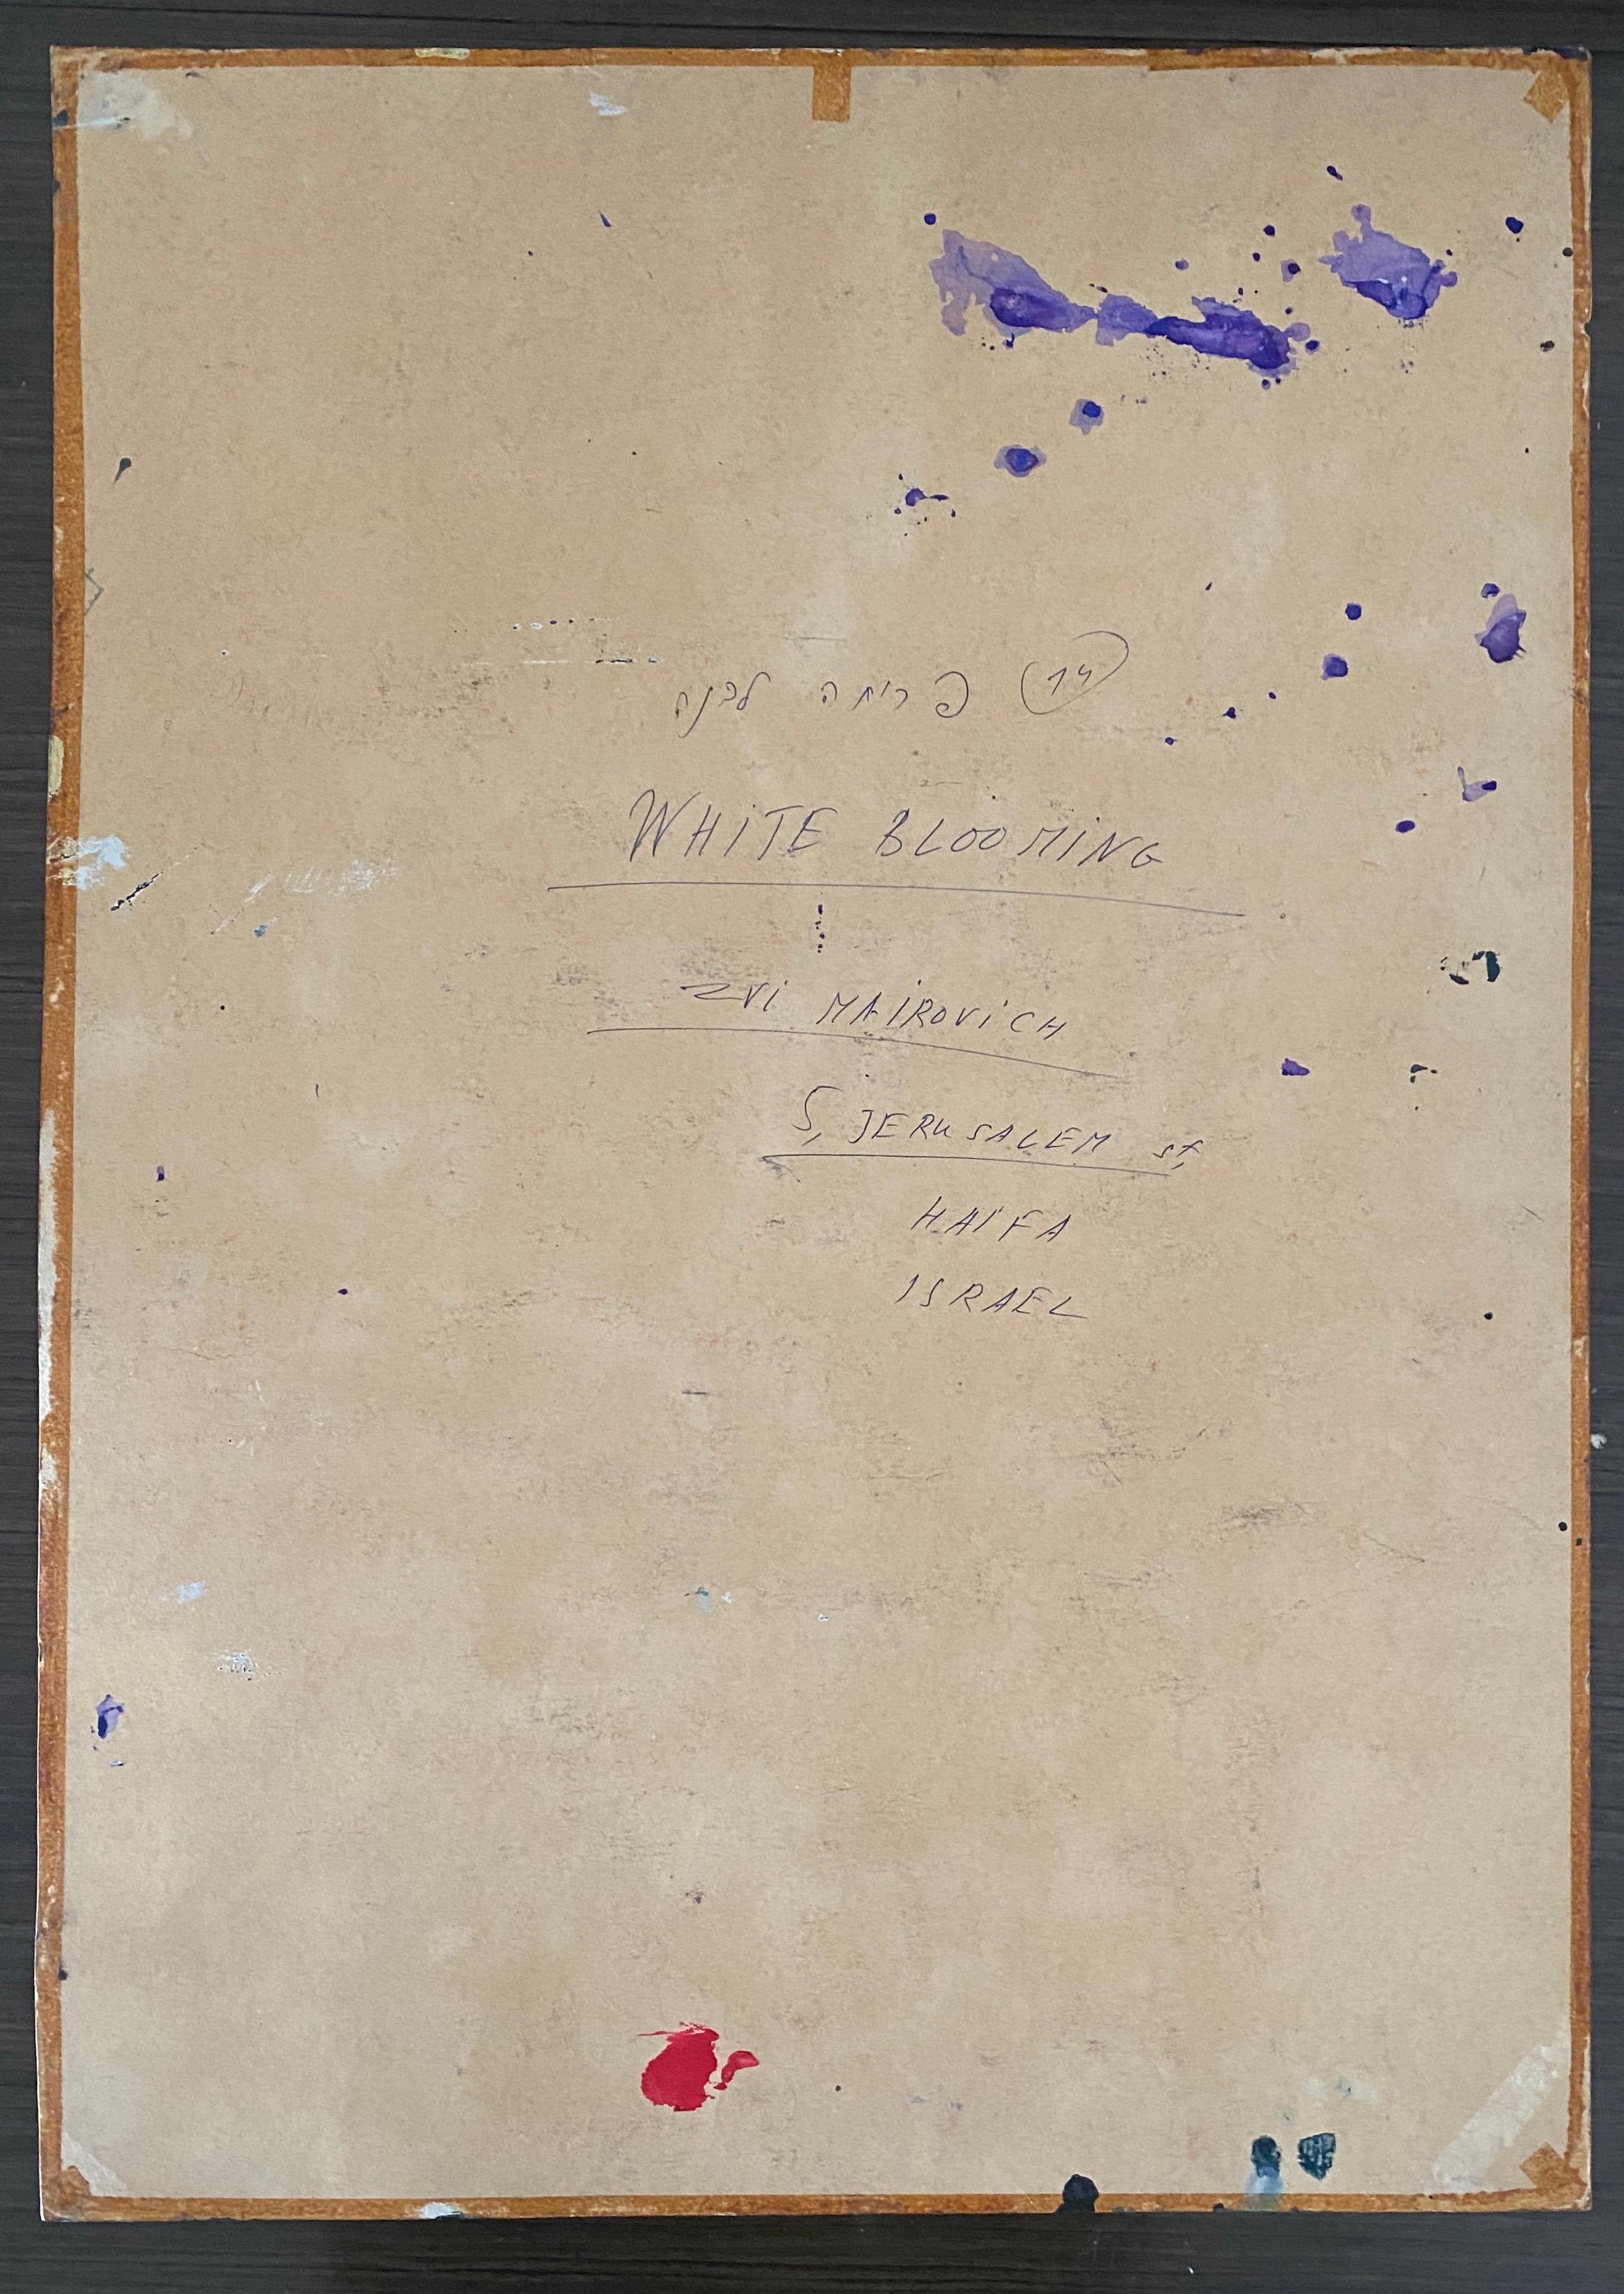 14 פריחה לבנה
WHiTE BLOOMiNG
ZVi MAiROViCH
5, JERUSALEM st.
HAiFA
ISRAEL